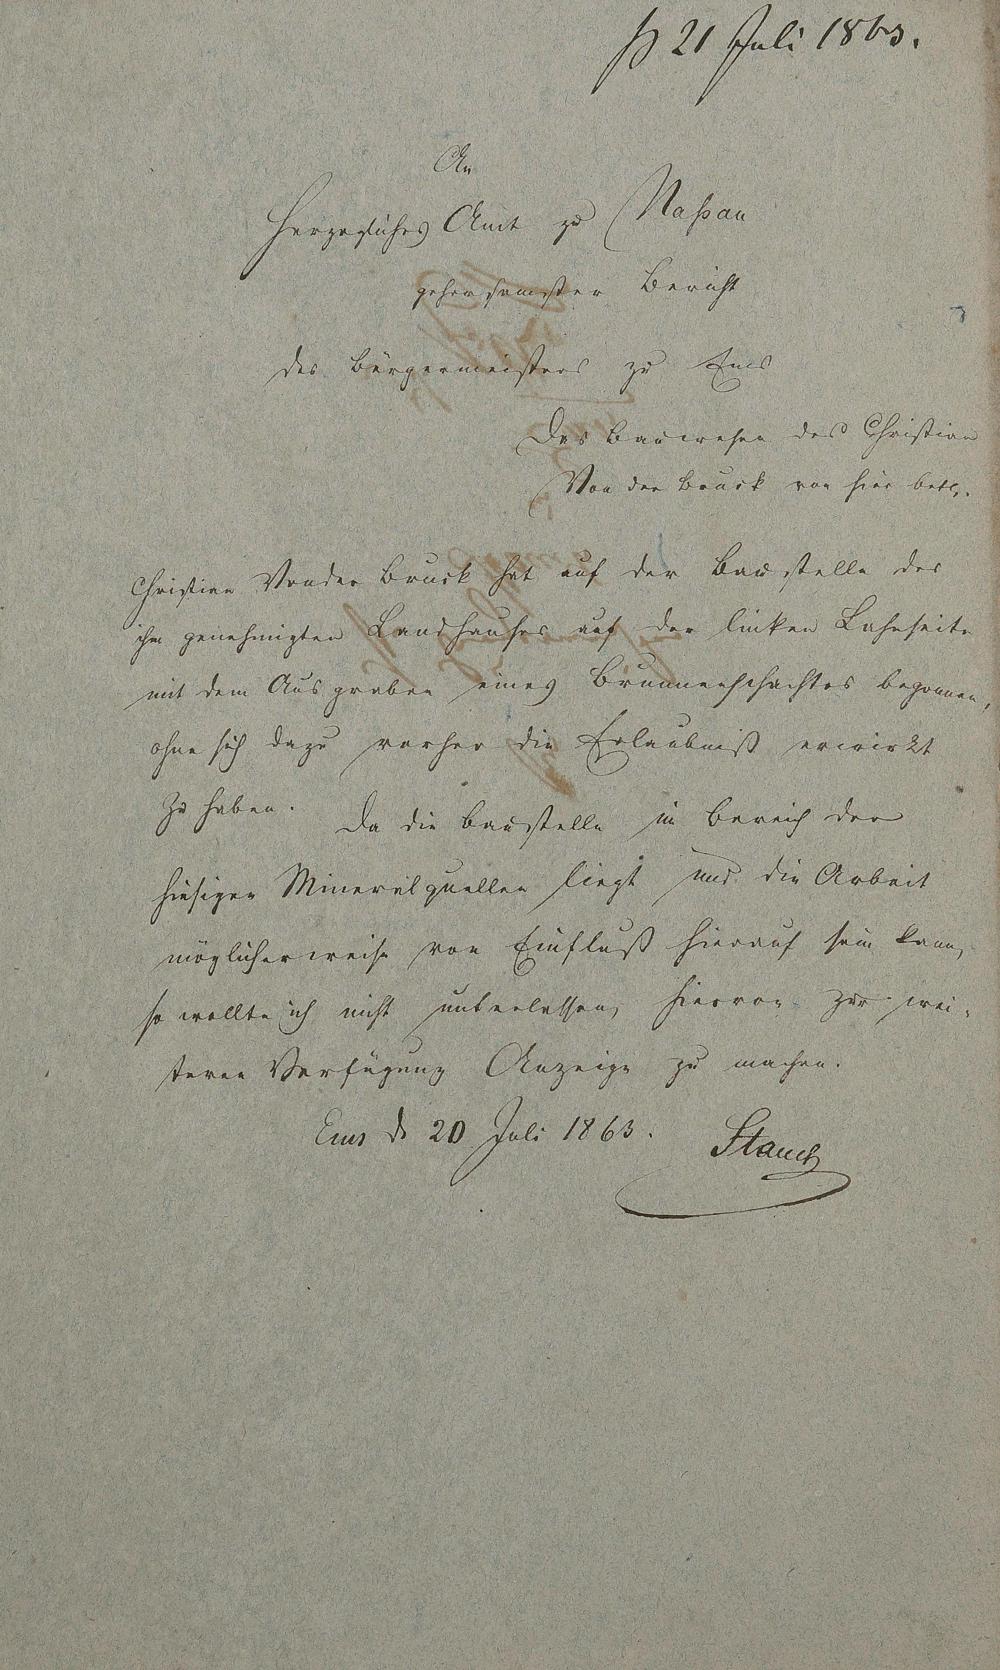 21 Juli 1863.
An
Herzogliches Amt zu Naßau
gehorsamster Bericht
des Bürgermeisters zu Ems
Das Bauwesen des Christian
Von der Bruck von hier betr.
Christian Vonder Bruck hat auf der Baustelle des
ihm genehmigten Landhauses auf der linken Lahnseite
mit dem Ausgraben eines Brunnenschachtes begonnen,
ohne sich dazu vorher die Erlaubniß erwirkt
zu haben. Da die Baustelle in Bereich der
hiesigen Mineralquellen liegt und die Arbeit
möglicherweise von Einfluß hierauf sein kann,
so wollte ich nicht unterlassen, hiervon zur wei-
teren Verfügung Anzeige zu machen.
Ems d 20 Juli 1863. Stauch